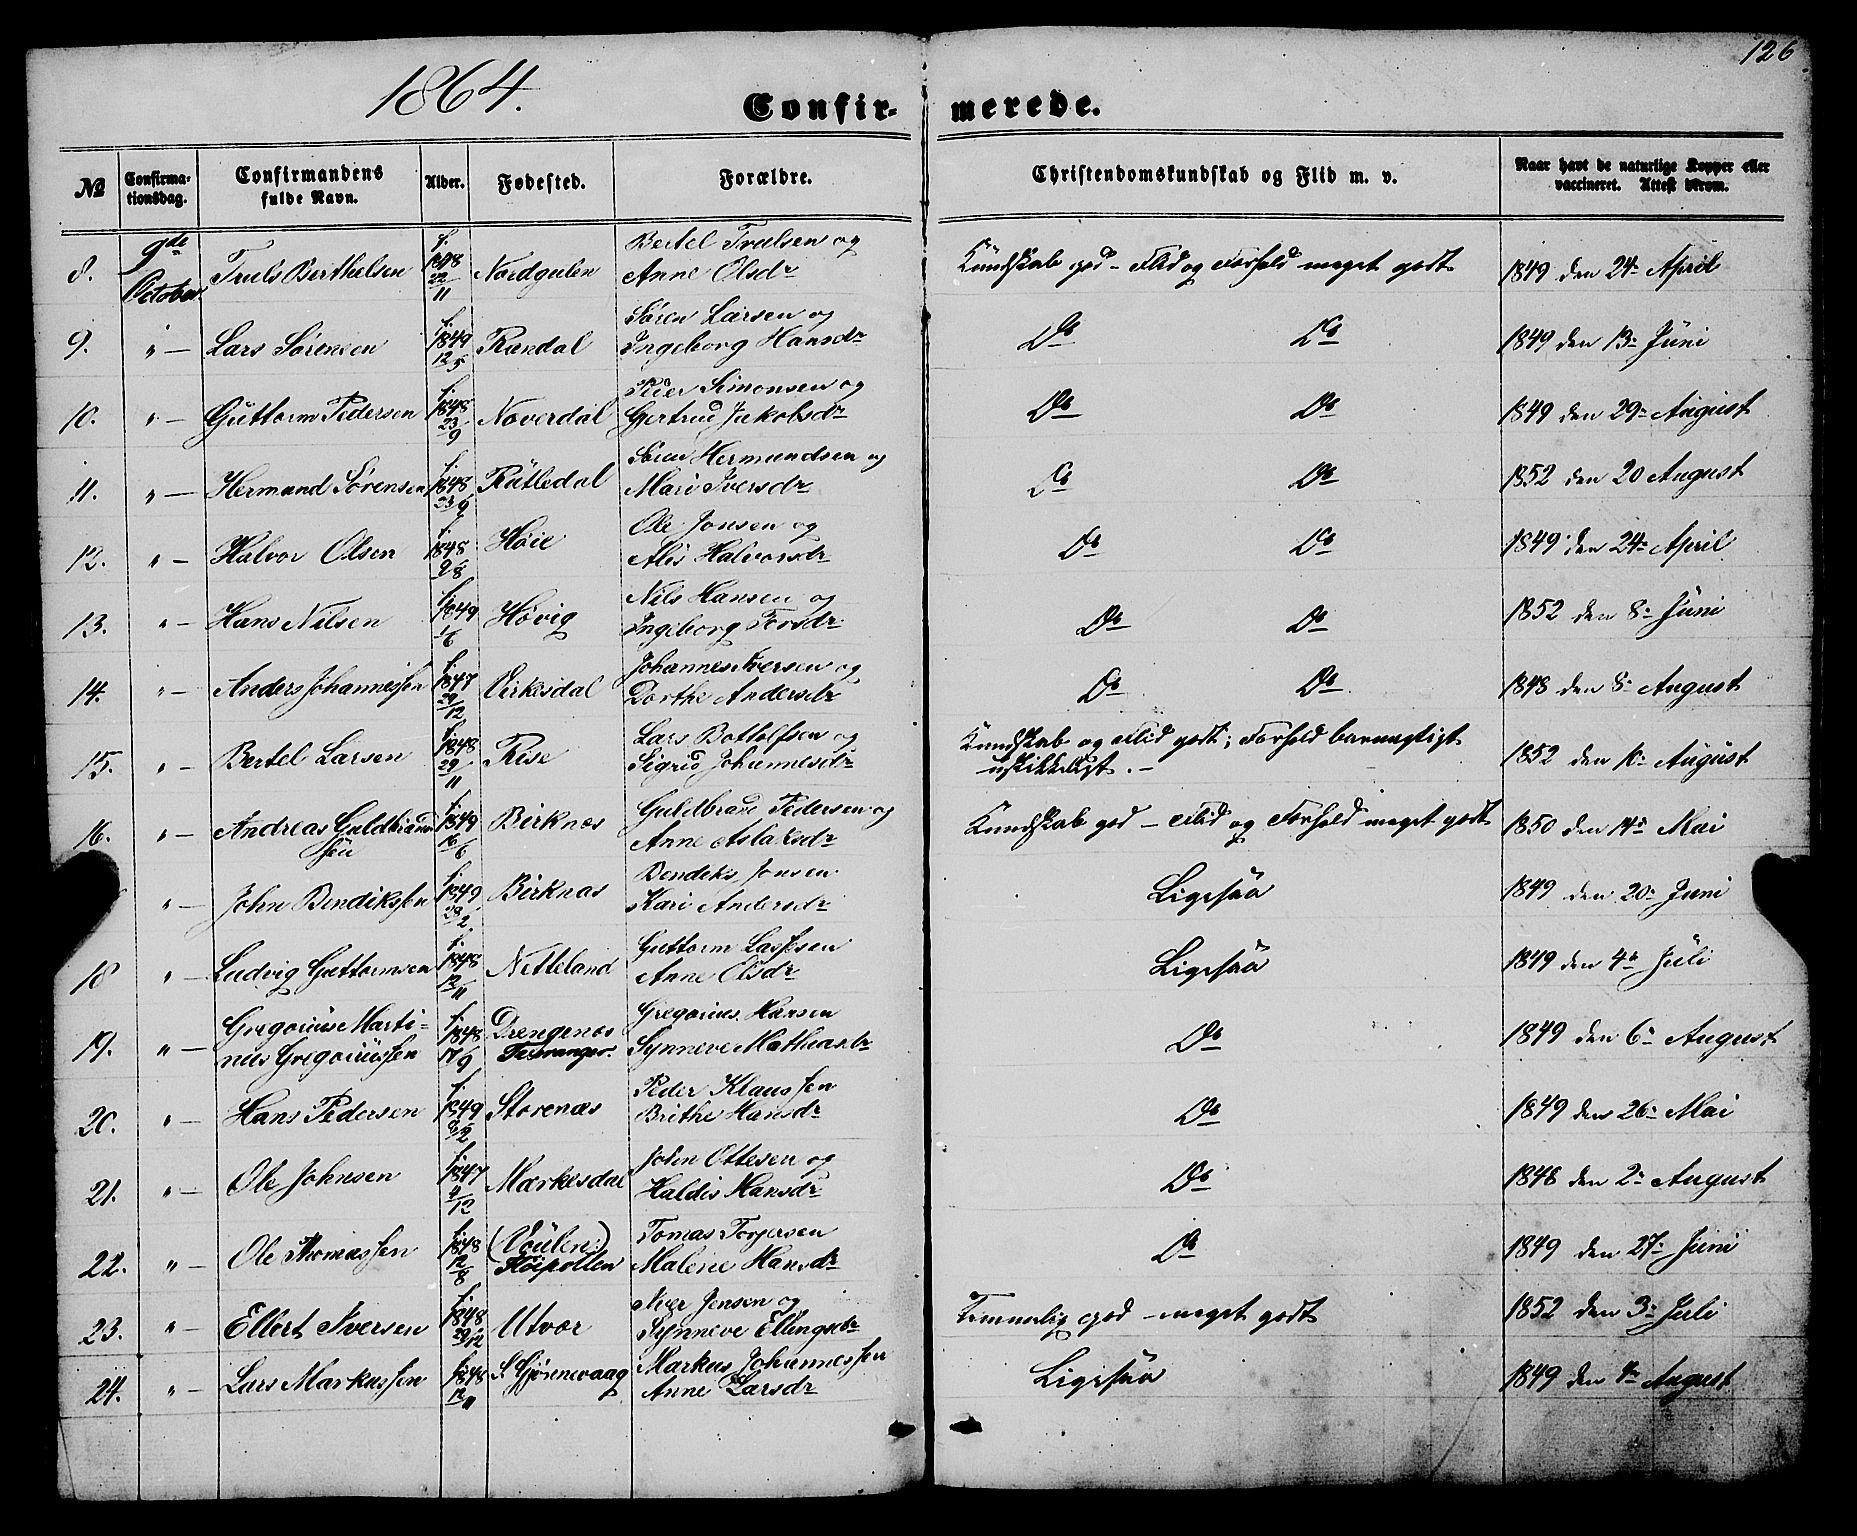 126
1864.
Confir- merede.
No Confirma- tionsdag. Confirmandens fulde Navn. Alder. Fødested. Forældre. Christendomskundskab og Flid m. v. Naar havt de naturlige Kopper eller vaccineret. Attest derom.
8. 9de October Truls Berthelsen f. 1848 22/11 Nordgulen Bertel Trulsen og Anne Olsdr Kundskab god - Flid og Forhold meget godt 1849 den 24de April
9. " — Lars Sørensen f. 1849 12/5 Rændal Søren Larsen og Ingeborg Hansdr Do Do 1849 den 13de Juni
10. " — Guttorm Pedersen f. 1848 23/9 Noverdal Peder Simonsen og Gjertrud Jakobsdr Do Do 1849 den 29de August
11. " — Hermund Sørensen f. 1848 23/6 Rutledal Søren Hermundsen og Mari Iversdr Do Do 1852 den 20 August
12. " — Halvor Olsen f. 1848 Høie Ole Jonsen og Alis Halvorsdr Do Do 1849 den 24de April
13. " — Hans Nilsen f. 1849 1/6 Høvig Nils Hansen og Ingeborg Torsdr Do Do 1852 den 8de Juni
14. " — Anders Johannessen f. 1847 29/12 Virkesdal Johannes Iversen og Dorthe Andersdr Do Do 1848 den 8de August
15. " — Bertel Larsen f. 1848 29/11 Rise Lars Bottolfsen og Sigrid Johannesdr Kundskab og Flid godt; Forhold
uskikkeligt. — 1852 den 10de August
16. " — Andreas Guldbrandsen f. 1849 16/6 Birknæs Guldbrand Pedersen og Anne Aslaksdr Kundskab god — Flid og Forhold meget godt 1850 den 14de Mai
" — John Bendikssen f. 1849 28/2 Birknæs Bendiks Jonsen Kari Andersdr Ligesaa 1849 den 20de Juni
18 " — Ludvig Guttormsen f. 1848 12/11 Netteland Guttorm Lassesen Anne Olsdr Ligesaa 1849 den 4de Juli
19. " — Gregorius Marti- nus Gregoriussen f. 1848 17/9 Drengenes Gregorius Hansen Synneve Mathiasdr Do 1849 den 6de August
20. " — Hans Pedersen f. 1849 Storenæs Peder Klaussen Brithe Hansdr Do 1849 den 26de Mai
21. " — Ole Johnsen f. 1847 Mærkesdal John Ottesen og Haldis Hansdr Do 1848 den 2de August
22. " — Ole Thomassen f. 1848 12/8 Tomas Torgersen Malene Hansdr Do 1849 den 27de Juni
23. " — Ellert Iversen f. 1848 29/12 Utvær Iver Jensen og Synneve Ellingsdr Temmelig god — meget godt 1852 den 3de Juli
24. " — Lars Markussen f. 1848 12/11 S. Gjønnevaag Markus Johannessen Anne Larsdr Ligesaa 1849 den August